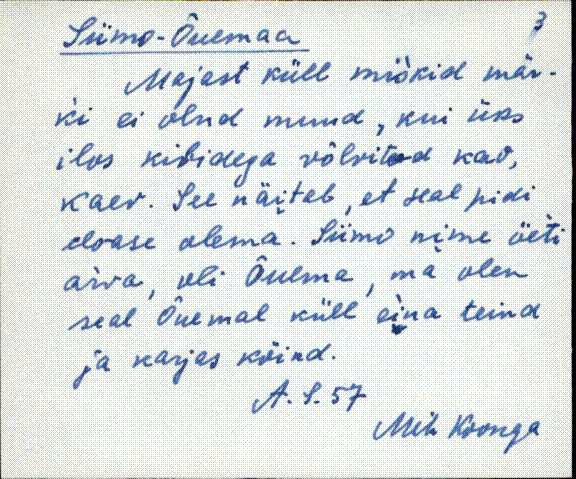 3
Siimo-Õuemaa
Majast küll miòkid mär-
ki ei olnd muud, kui üks
ilos kividega võlvitud kao,
kaev. See näitab, et seal pidi
eloase olema. Siimo nime öeti
arva, oli Õuema, ma olen
seal Õuemal küll eina teind
ja karjas köind.
A. S. 57
Mih Koonga